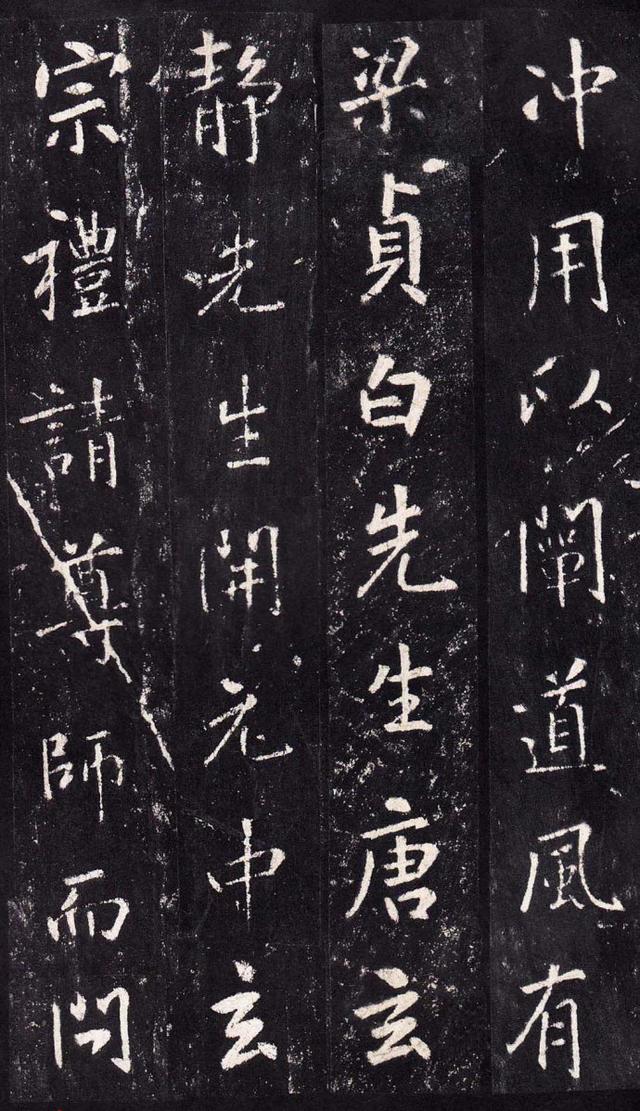 冲用以闡道風有
梁貞白先生唐玄
靜先生開元中玄
宗禮請尊師而問